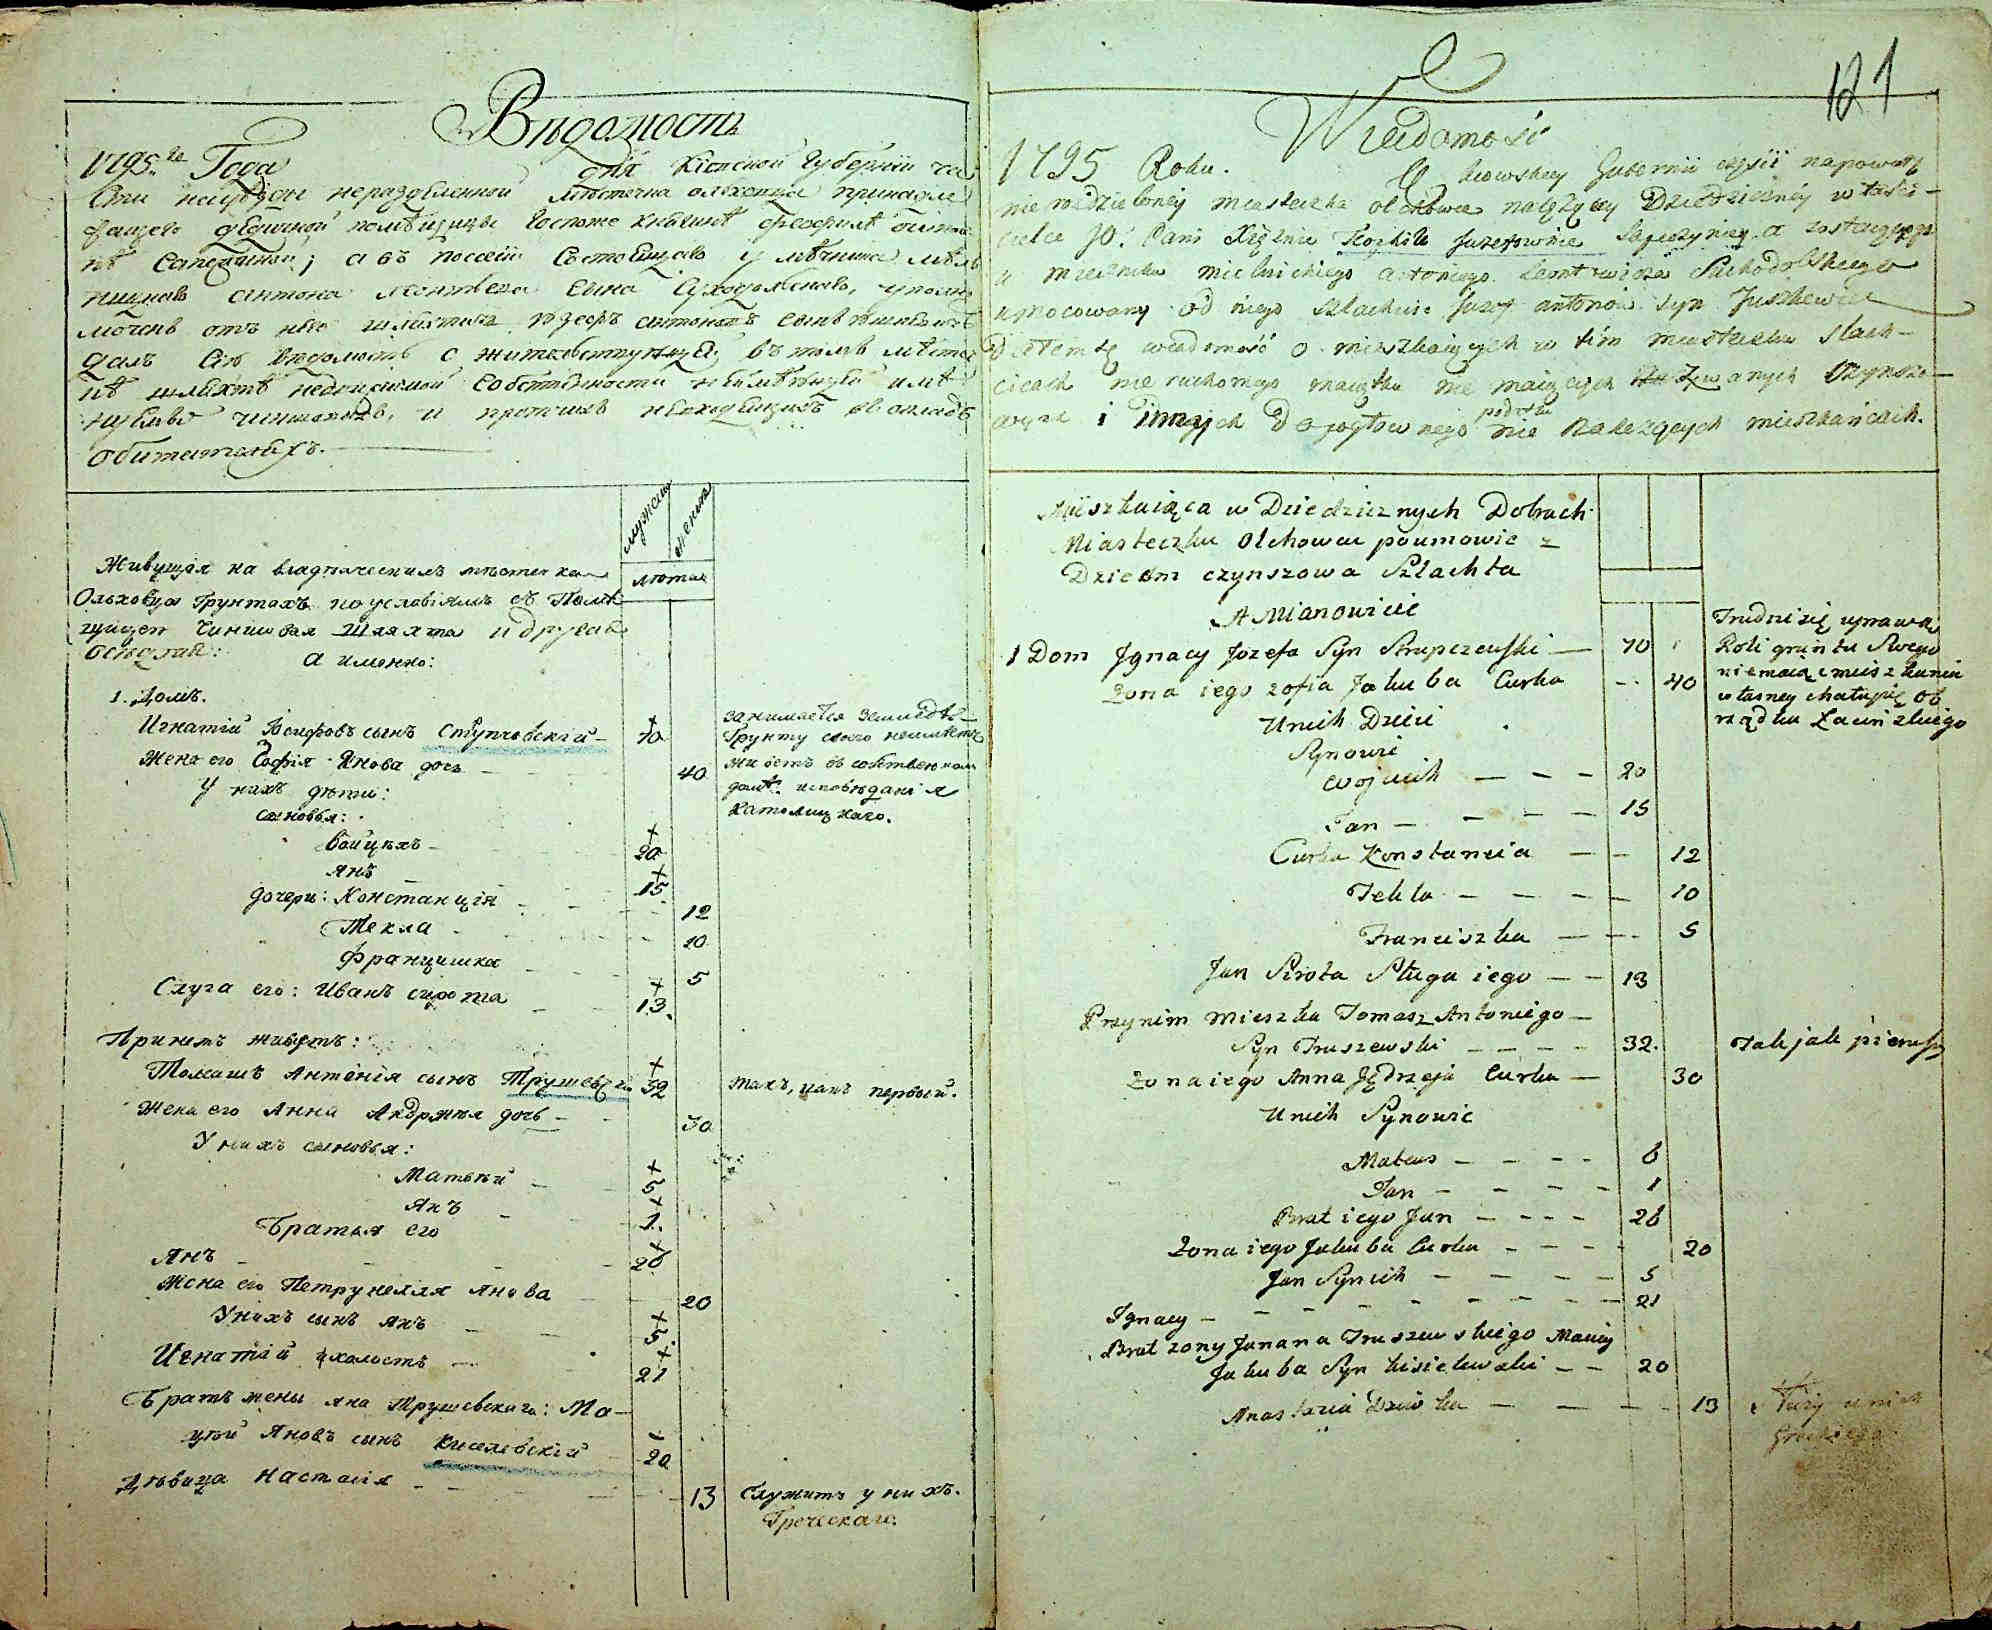 Вѣдомость
1795го Года дня Кіевской Губерніи ча
сти на уѣзды нераздѣленной мѣстечка Ольховца принадле
жащего дѣдичной помѣщицы Госпоже Княгинѣ Теофилѣ
Сапежиной; а въ поссесіи состоящаго у мѣчника мѣль
ницкаго Антона Леонтьева сына Суходольскаго, уполно
моченъ отъ него шляхтичъ Іозефъ Антоновъ сынъ
далъ сію вѣдомость о жительствующей въ томъ мѣстеч
кѣ шляхтѣ недвижимой собственности неимѣющей имѣ
нуемыхъ чиншовыхъ, и протчихъ невходящихъ въ окладъ
обитателяхъ.
мужеск
женска
лѣта
Живущая на владѣльческихъ мѣстечка
Ольховца Грунтахъ по условіямъ съ Помѣ
щицею Чиншовая Шляхта и другая
а именно:
1. Домъ.
Игнатій Іосифовъ сынъ Ступчевскій 70
занимается земледѣ
Грунту своего неимѣетъ
живетъ въ собственномъ
домѣ исповѣданія
католицкаго.
Жена его Софія Янова дочь 40
У нихъ дѣти:
сыновья:
Войцѣхъ 20
Янъ 15
дочери: Констанція 12
Текла 10
Францишка 5
Слуга его: Иванъ сирота 13.
При немъ живутъ:
Томашъ Антонія сынъ Трушевскій 32 такъ, какъ первый.
Жена его Анна Андржея дочь 30
У нихъ сыновья:
Матвѣй 5
Янъ 1.
Братья его
Янъ 26
Жена его Петрунелля Янова 20
У нихъ сынъ Янъ 5.
Игнатій холостъ 21
Братъ жены Яна Трушевскаго: Ма
цѣй Яновъ сынъ Киселевскій 20
Дѣвица Настасія 13 Служитъ у нихъ.
Греческаго.
121
Wiadomość
1795 Roku. Kiowskiey Gubernii częsii napowiaty
nierozdzieloney miasteczka Olchowca należącey Dziedziczney właści-
cielce JO: Pani Xiężnie Teofili Sapieżyney a zostaiącego
u miecznika mielnickiego Antoniego Leontiewicza Suchodolskiego
umocowany od niego szlachcic Jozef Antoniów syn Juszkiewicz
Dałem tę wiadomość o mieszkaiących w tim miasteczku szlach-
cicach nieruchomego maiątku nie maiących Nazywanych Czynszo-
wych i innych Do pogłownego podatku nie należących mieszkańcach.
Mieszkaiąca w Dziedzicznych Dobrach
Miasteczku Olchowcu poumowie z
Dziedzm czynszowa Szlachta
A Mianowicie
1 Dom Jgnacy Jozefa Syn Strupczewski 70
Trudni się uprawą
Roli gruntu Swego
niemaiąc mieszkania
własney chałupie ob
rządku Łacinskiego
Zona iego Zofia Jakuba Curka 40
Unich Dzieci
Synowie
Woyciech 20
Jan 15
Curka Konstancia 12
Tekla 10
Franciszka 5
Jan Sirota Sługa iego 13
Przynim Mieszka Tomasz Antoniego
Syn Truszewski 32. Tak jak pierwszy
Zona iego Anna Jędrzeja Curka 30
Unich Synowie
Mateus 6
Jan 1
Brat iego Jan 26
Zona iego Jakuba Curka 20
Jan Synich 5
Jgnacy 21
Brat zony Janana Truszewskiego Maciey
Jakuba Syn Kisielewski 20
Anastazia Dziwka 13 Służy unich
Greckiego